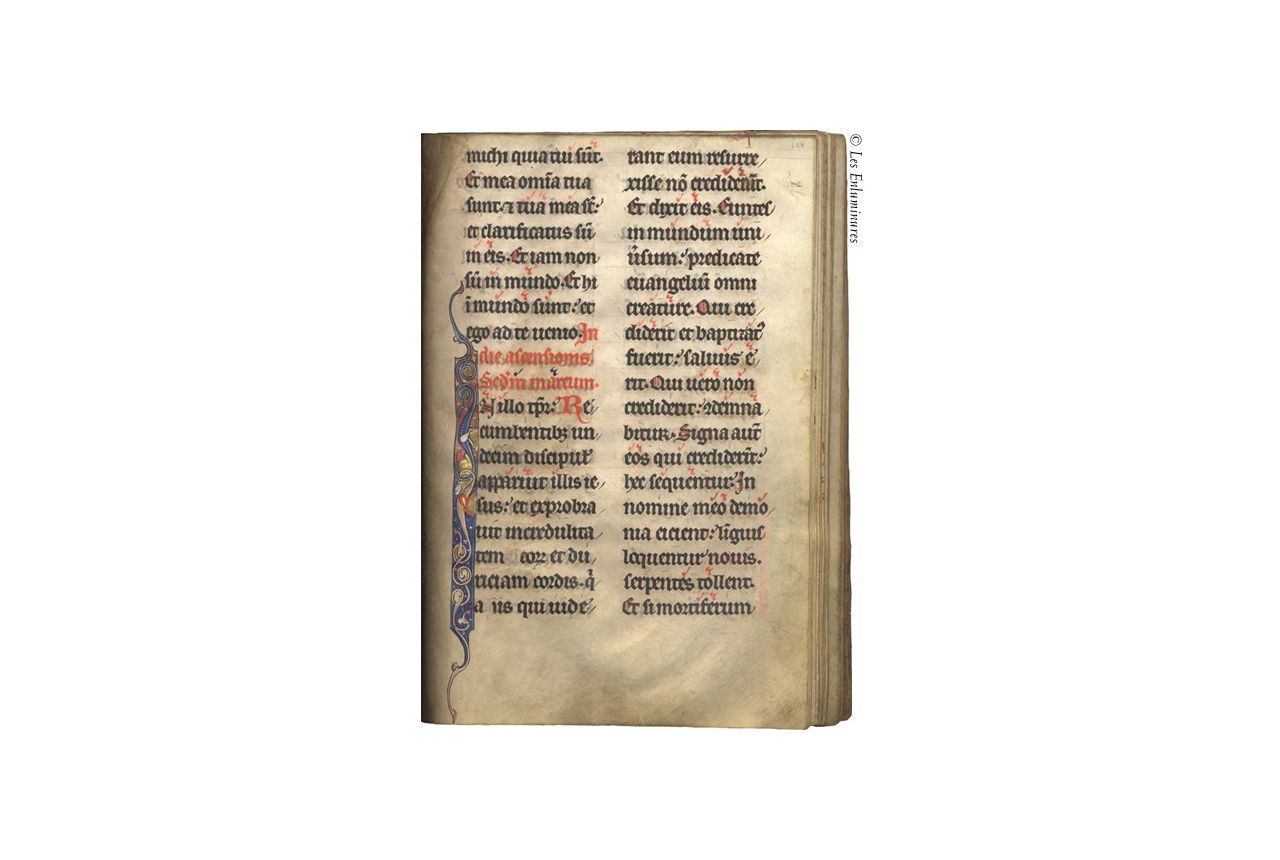 michi quia tui sūt.
Et mea omīa tua
sunt. ⁊ tua mea st̄:
et clarificatus sū
in eis. Et iam non
sū in mundo. Et hi
ī mundo sunt: et
ego ad te uenio. In
die ascensionis.
Scd̄m marcum.
N illo tp̄r: Re
cumbentibꝫ un
decim discipul̵
apparuit illis ie
sus: et exprobra
uit incredulita
tem corꝝ et du
riciam cordis. q̄
a iis qui uide
rant eum resurre
xisse nō crediderūt.
Et dixit eis. Euntes
in mundum uni
ūsum: predicate
euangeliū omni
creature. Qui cre
diderit et baptizat᷒
fuerit: saluus e
rit. Qui uero non
crediderit: ꝯdemna
bitur. Signa aut̄
eos qui crediderīt:
hec sequentur: In
nomine meo demo
nia eicient: linguis
loquentur nouis.
serpentes tollent.
Et si mortiferum
© Les Enluminures